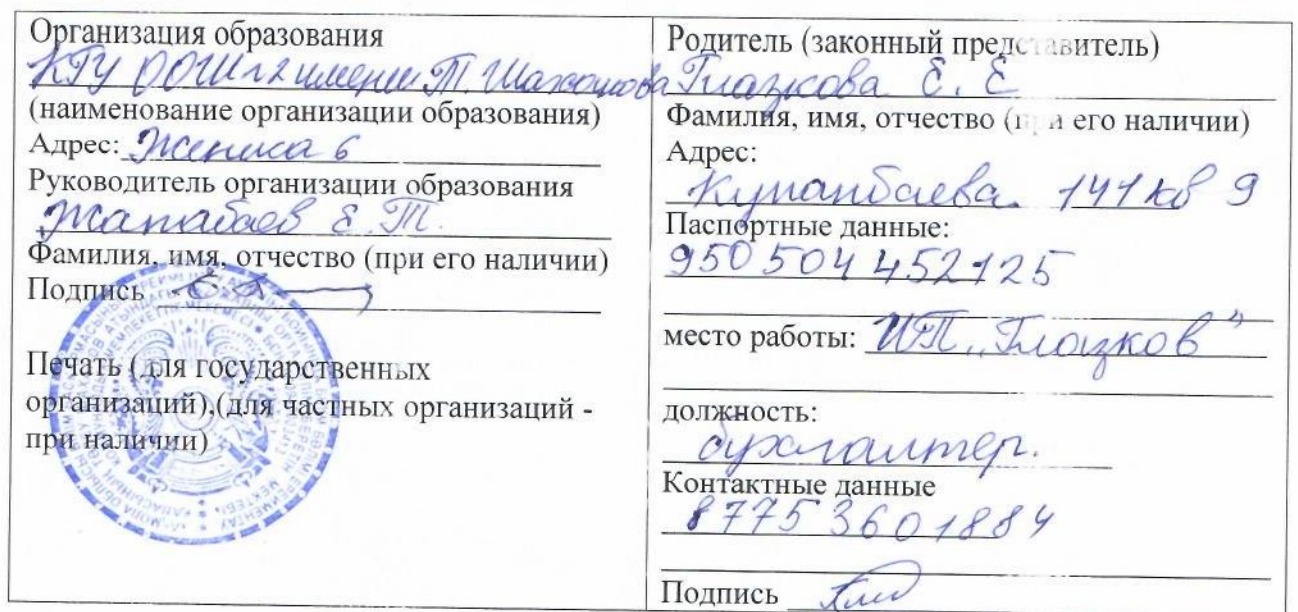 Организация образования
КГУ ООШ №2 имени Т. Шаханова
(наименование организации образования)
Адрес: Жениса 6
Руководитель организации образования
Жапабаев Е.Т.
Фамилия, имя, отчество (при его наличии)
Подпись
Печать (для государственных
организаций),(для частных организаций -
при наличии)
Родитель (законный представитель)
Глазкова Е. Е
Фамилия, имя, отчество (при его наличии)
Адрес:
Кунанбаева 141 кв 9
Паспортные данные:
950504452125
место работы: ИП „Глазков"
должность:
бухгалтер.
Контактные данные
87753601884
Подпись